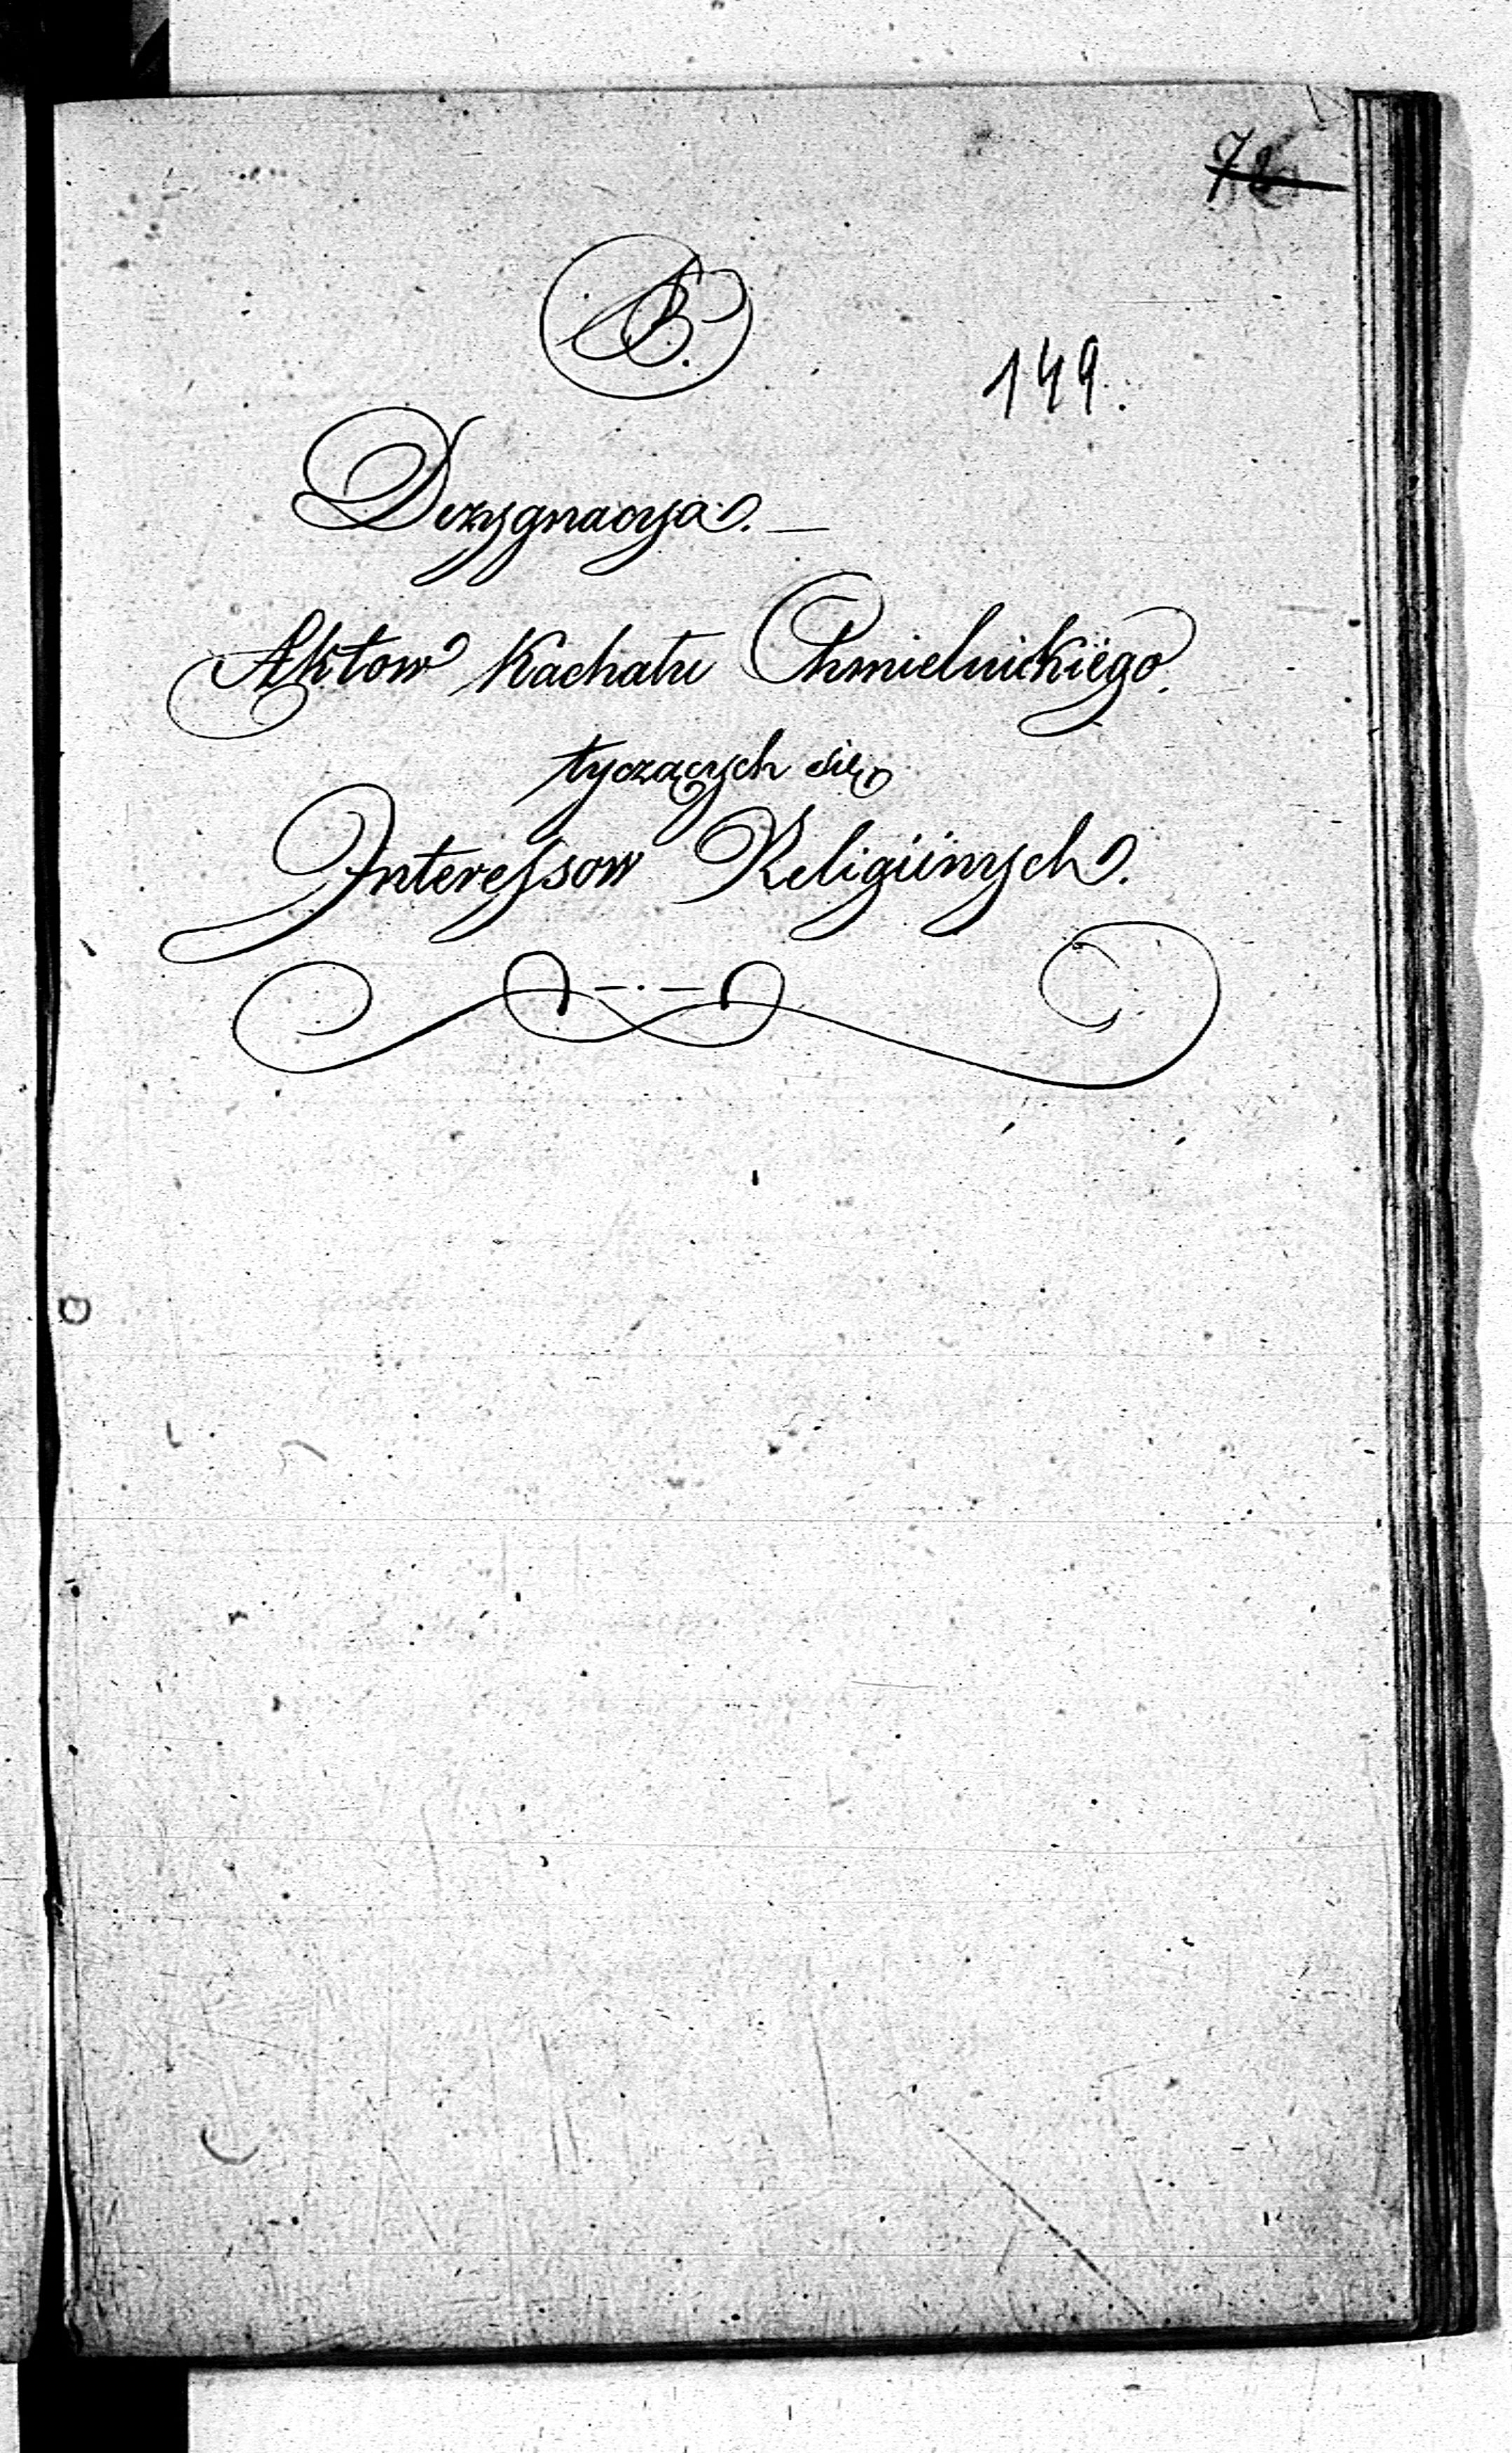 149.
Dezygnacya. —
Aktow Kachału Chmielnickiego.
tyczących się
Interessow Religiinych.